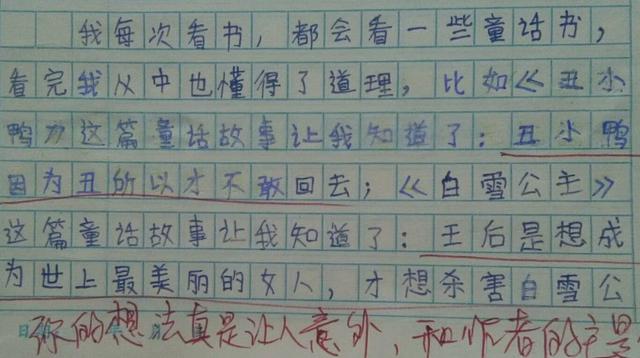 我每次看书，都会看一些童话书，
看完我从中也懂得了道理，比如《丑小
鸭》这篇童话故事让我知道了：丑小鸭
因为丑所以才不敢回去；《白雪公主》
这篇童话故事让我知道了：王后是想成
为世上最美丽的女人，才想杀害白雪公
你的想法真是让人意外，和作者的